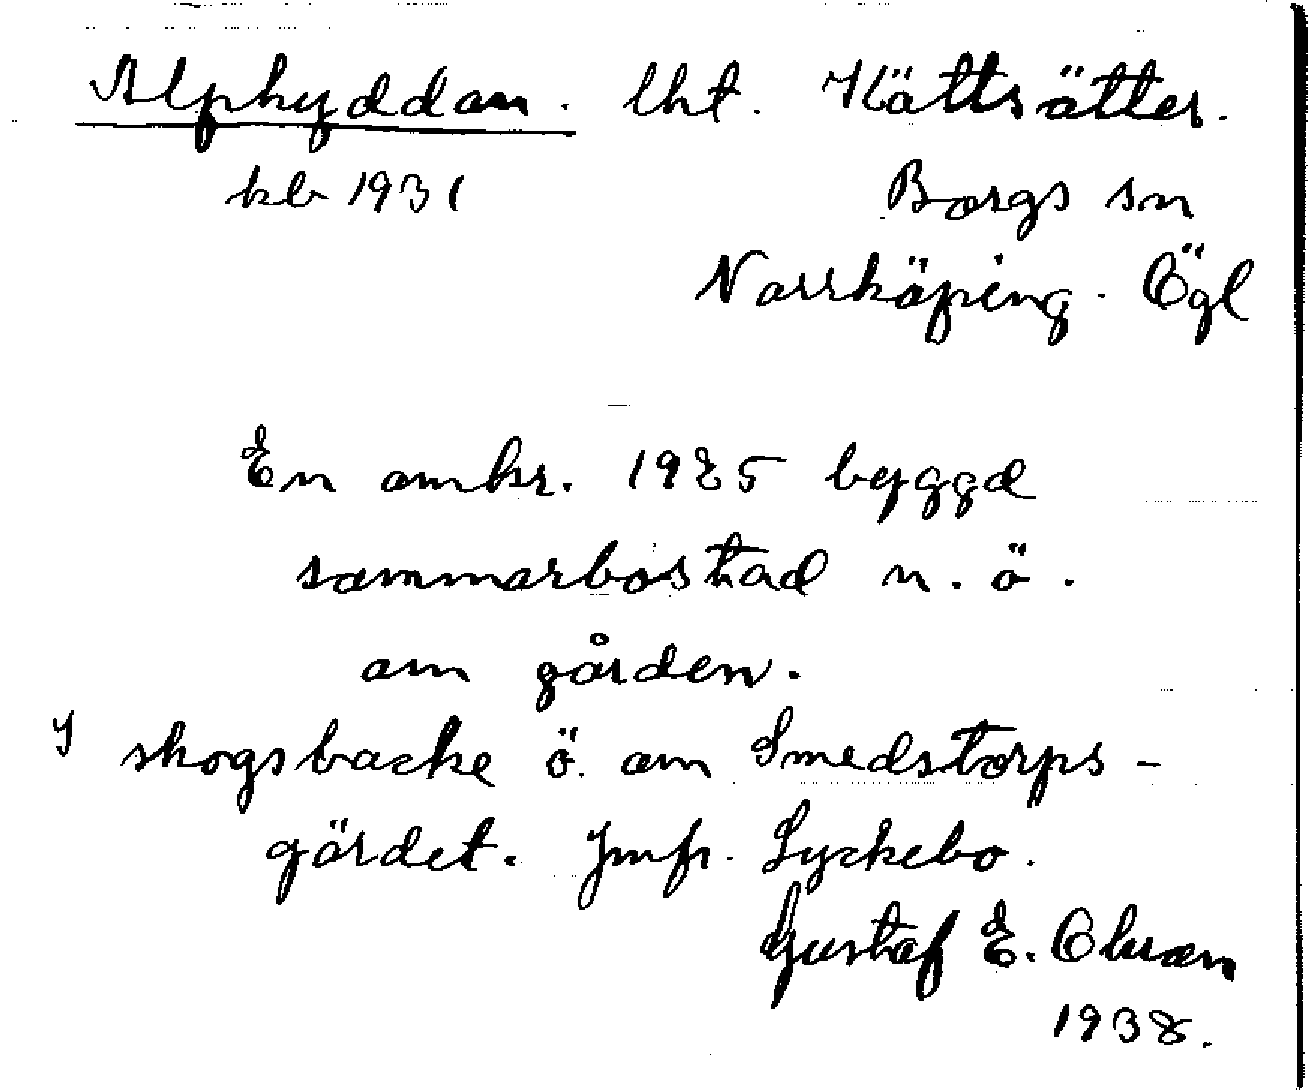 Alphyddan. lht. Hättsätter.
kb 1931 Borgs sn
Norrköping. Ögl
En omkr. 1925 byggd
sommarbostad n. ö.
om gården.
I skogsbacke ö. om Smedstorps-
gärdet. Jmfr. Lyckebo.
Gustaf E. Olsson
1938.